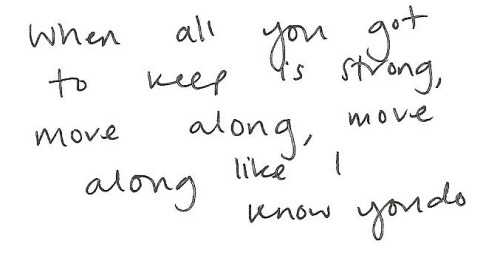 When all you got
to keep is strong,
move along, move
along like I
know you do